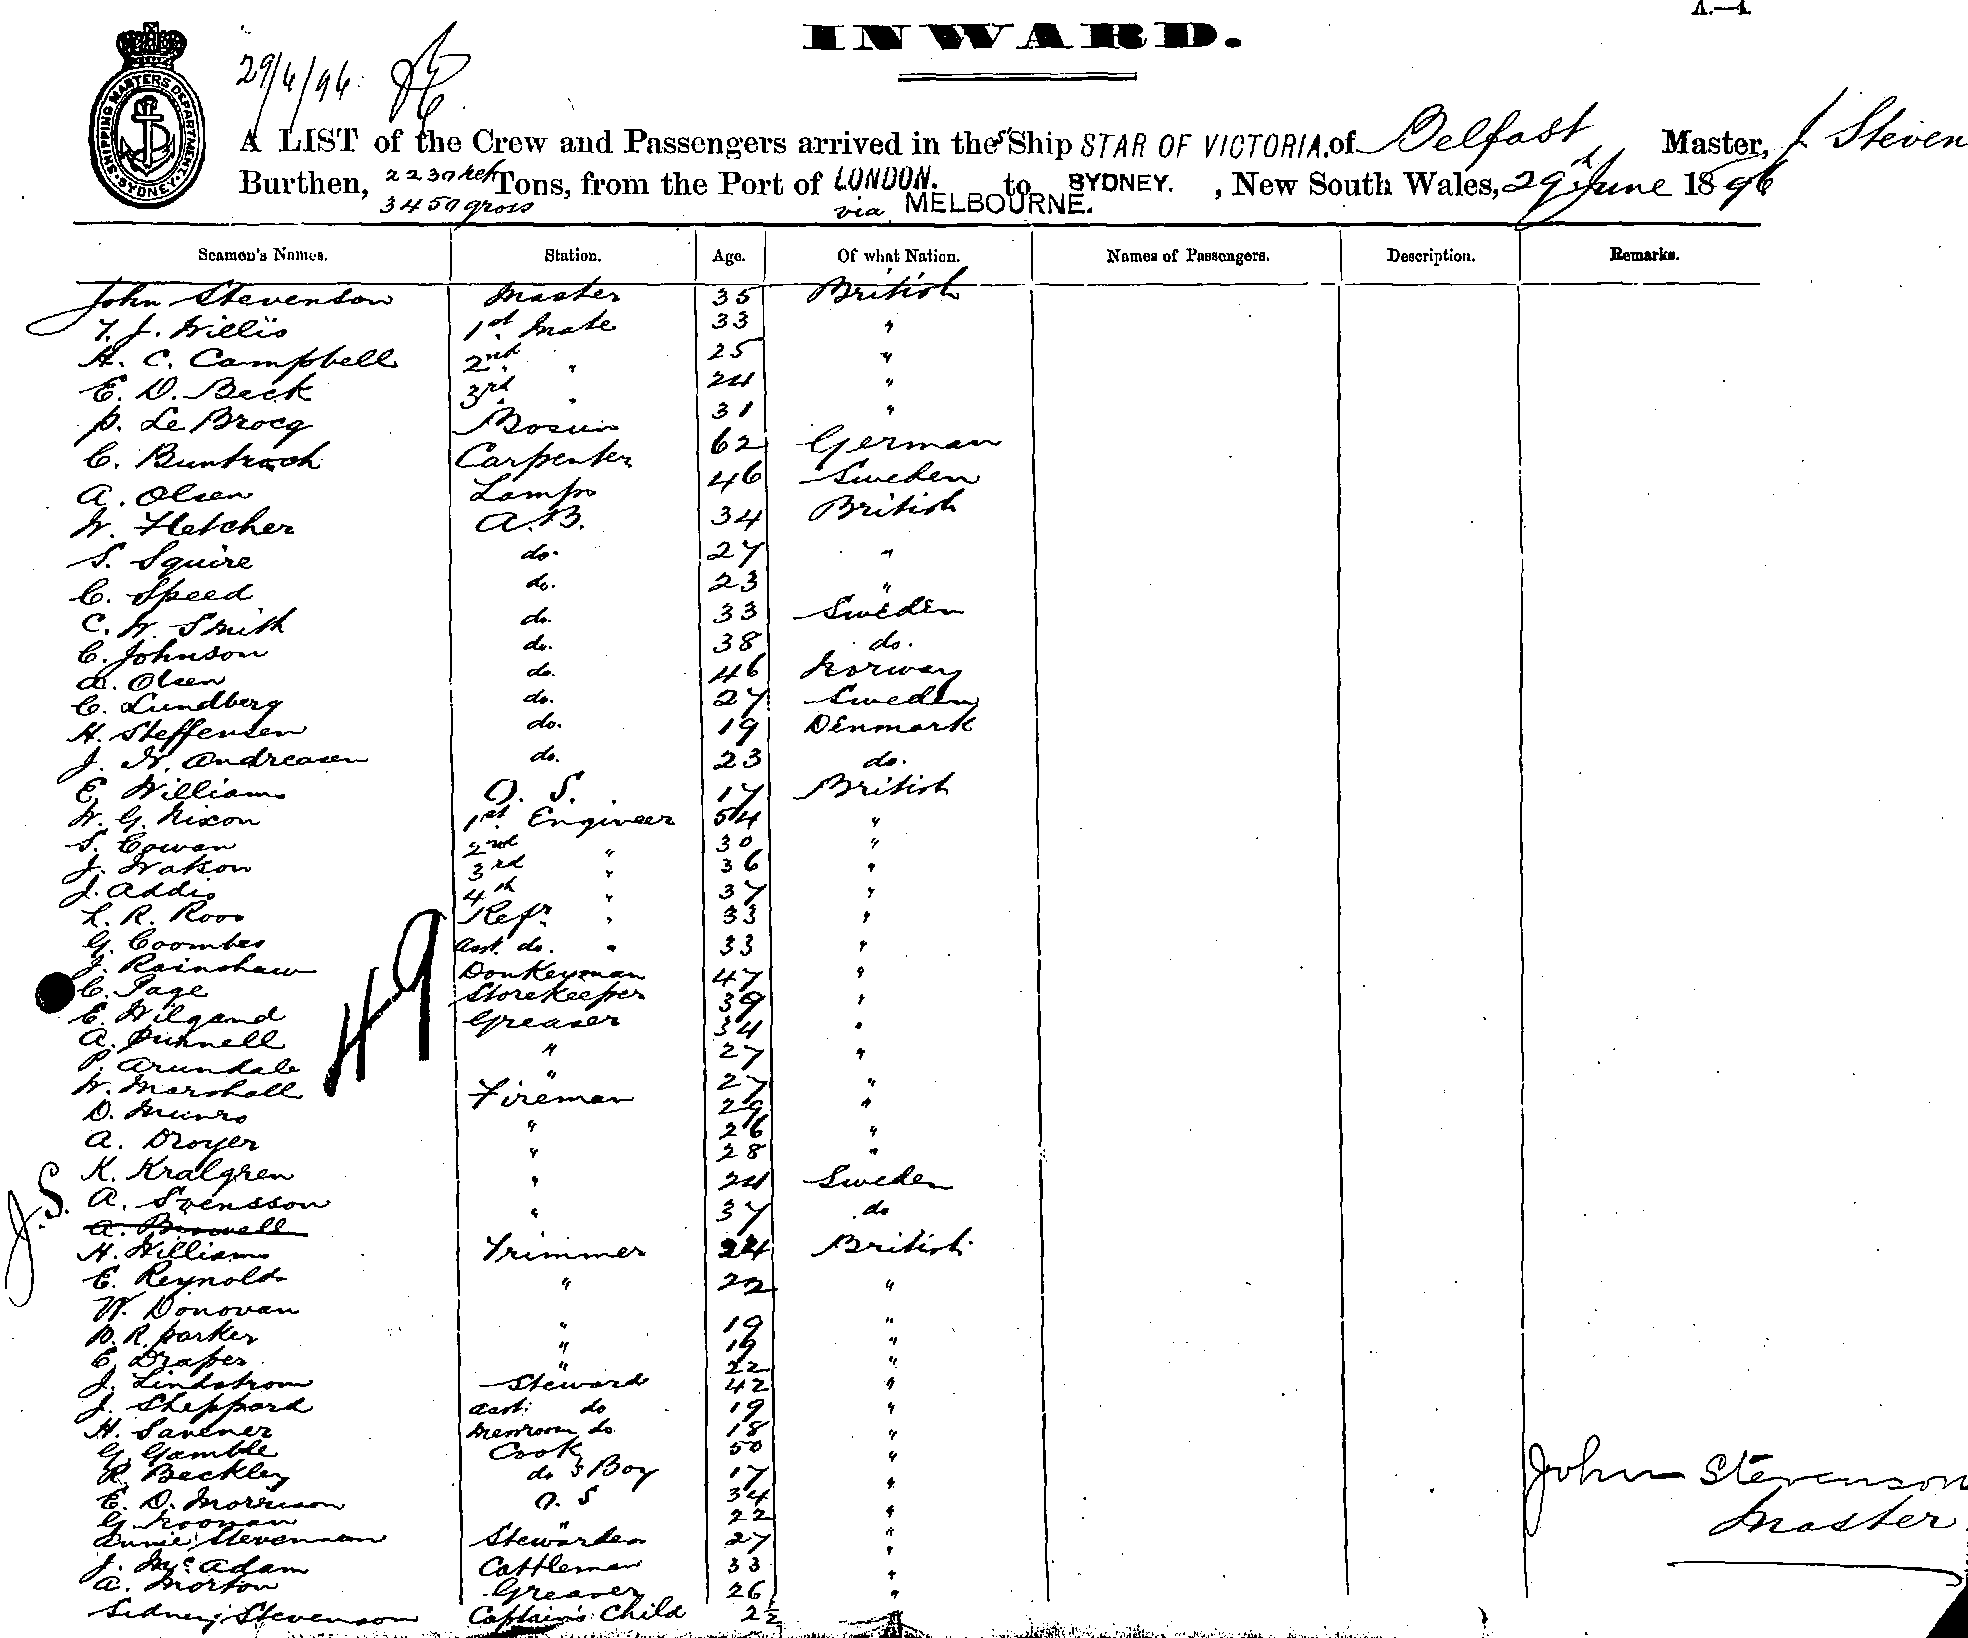 A.—4.
INWARD.
29/6/96.
SHIPPING MASTERS DEPARTMENT SYDNEY
A LIST of the Crew and Passengers arrived in the SS Ship STAR OF VICTORIA. of Belfast, Master, J Steven
Burthen, 2239 net Tons, from the Port of LONDON. to SYDNEY. , New South Wales, 29th June 1896
3459 gross via MELBOURNE.
Seamen's Names. Station. Age. Of what Nation. Names of Passengers. Description. Remarks.
John Stevenson Master 35 British
T. J. Willis 1st Mate 33 "
H. C. Campbell 2nd " 25 "
E. D. Beck 3rd " 24 "
P. Le Brocq Bosun 31 "
C. Buntrock Carpenter 62 German
A. Olsen Lamps 46 Sweden
W. Fletcher A.B. 34 British
S. Squire do. 27 "
C. Speed do. 23 "
C. W. Smith do. 33 Sweden
C. Johnson do. 38 do.
A. Olsen do. 46 Norway
C. Lundberg do. 27 Sweden
H. Steffensen do. 19 Denmark
J. N. Andreasen do. 23 do.
E. Williams O. S. 17 British
W. G. Nixon 1st Engineer 54 "
S. Cowan 2nd " 30 "
J. Watson 3rd " 36 "
J. Addis 4th " 37 "
L. R. Roos Refr. " 33 "
G. Coombes Asst. do. " 33 "
J. Rainshaw Donkeyman 47 "
C. Page Storekeeper 39 "
E. Wilgand Greaser 34 "
A. Punnell " 27 "
P. Arundale " 27 "
W. Marshall Fireman 29 "
D. Munro " 26 "
A. Droyer " 28 "
K. Kralgren " 24 Sweden
A. Svensson " 37 do
J.S. A. Brownell
H. Williams Trimmer 24 British
E. Reynolds " 22 "
W. Donovan
D. R. Parker " 19 "
E. Draper " 19 "
" 22 "
J. Lindstrom Steward 42 "
J. Sheppard asst. do 19 "
H. Savener Messroom do 18 "
G. Gamble Cook 50 "
R. Beckley do's Boy 17 "
E. D. Morrison O. S 34 "
G. Noonan " 22 "
Annie Stevenson Stewardess 27 "
J. McAdam Cattleman 33 "
A. Morton Greaser 26 "
Sidney Stevenson Captain's Child 2½
49
John Stevenson
Master